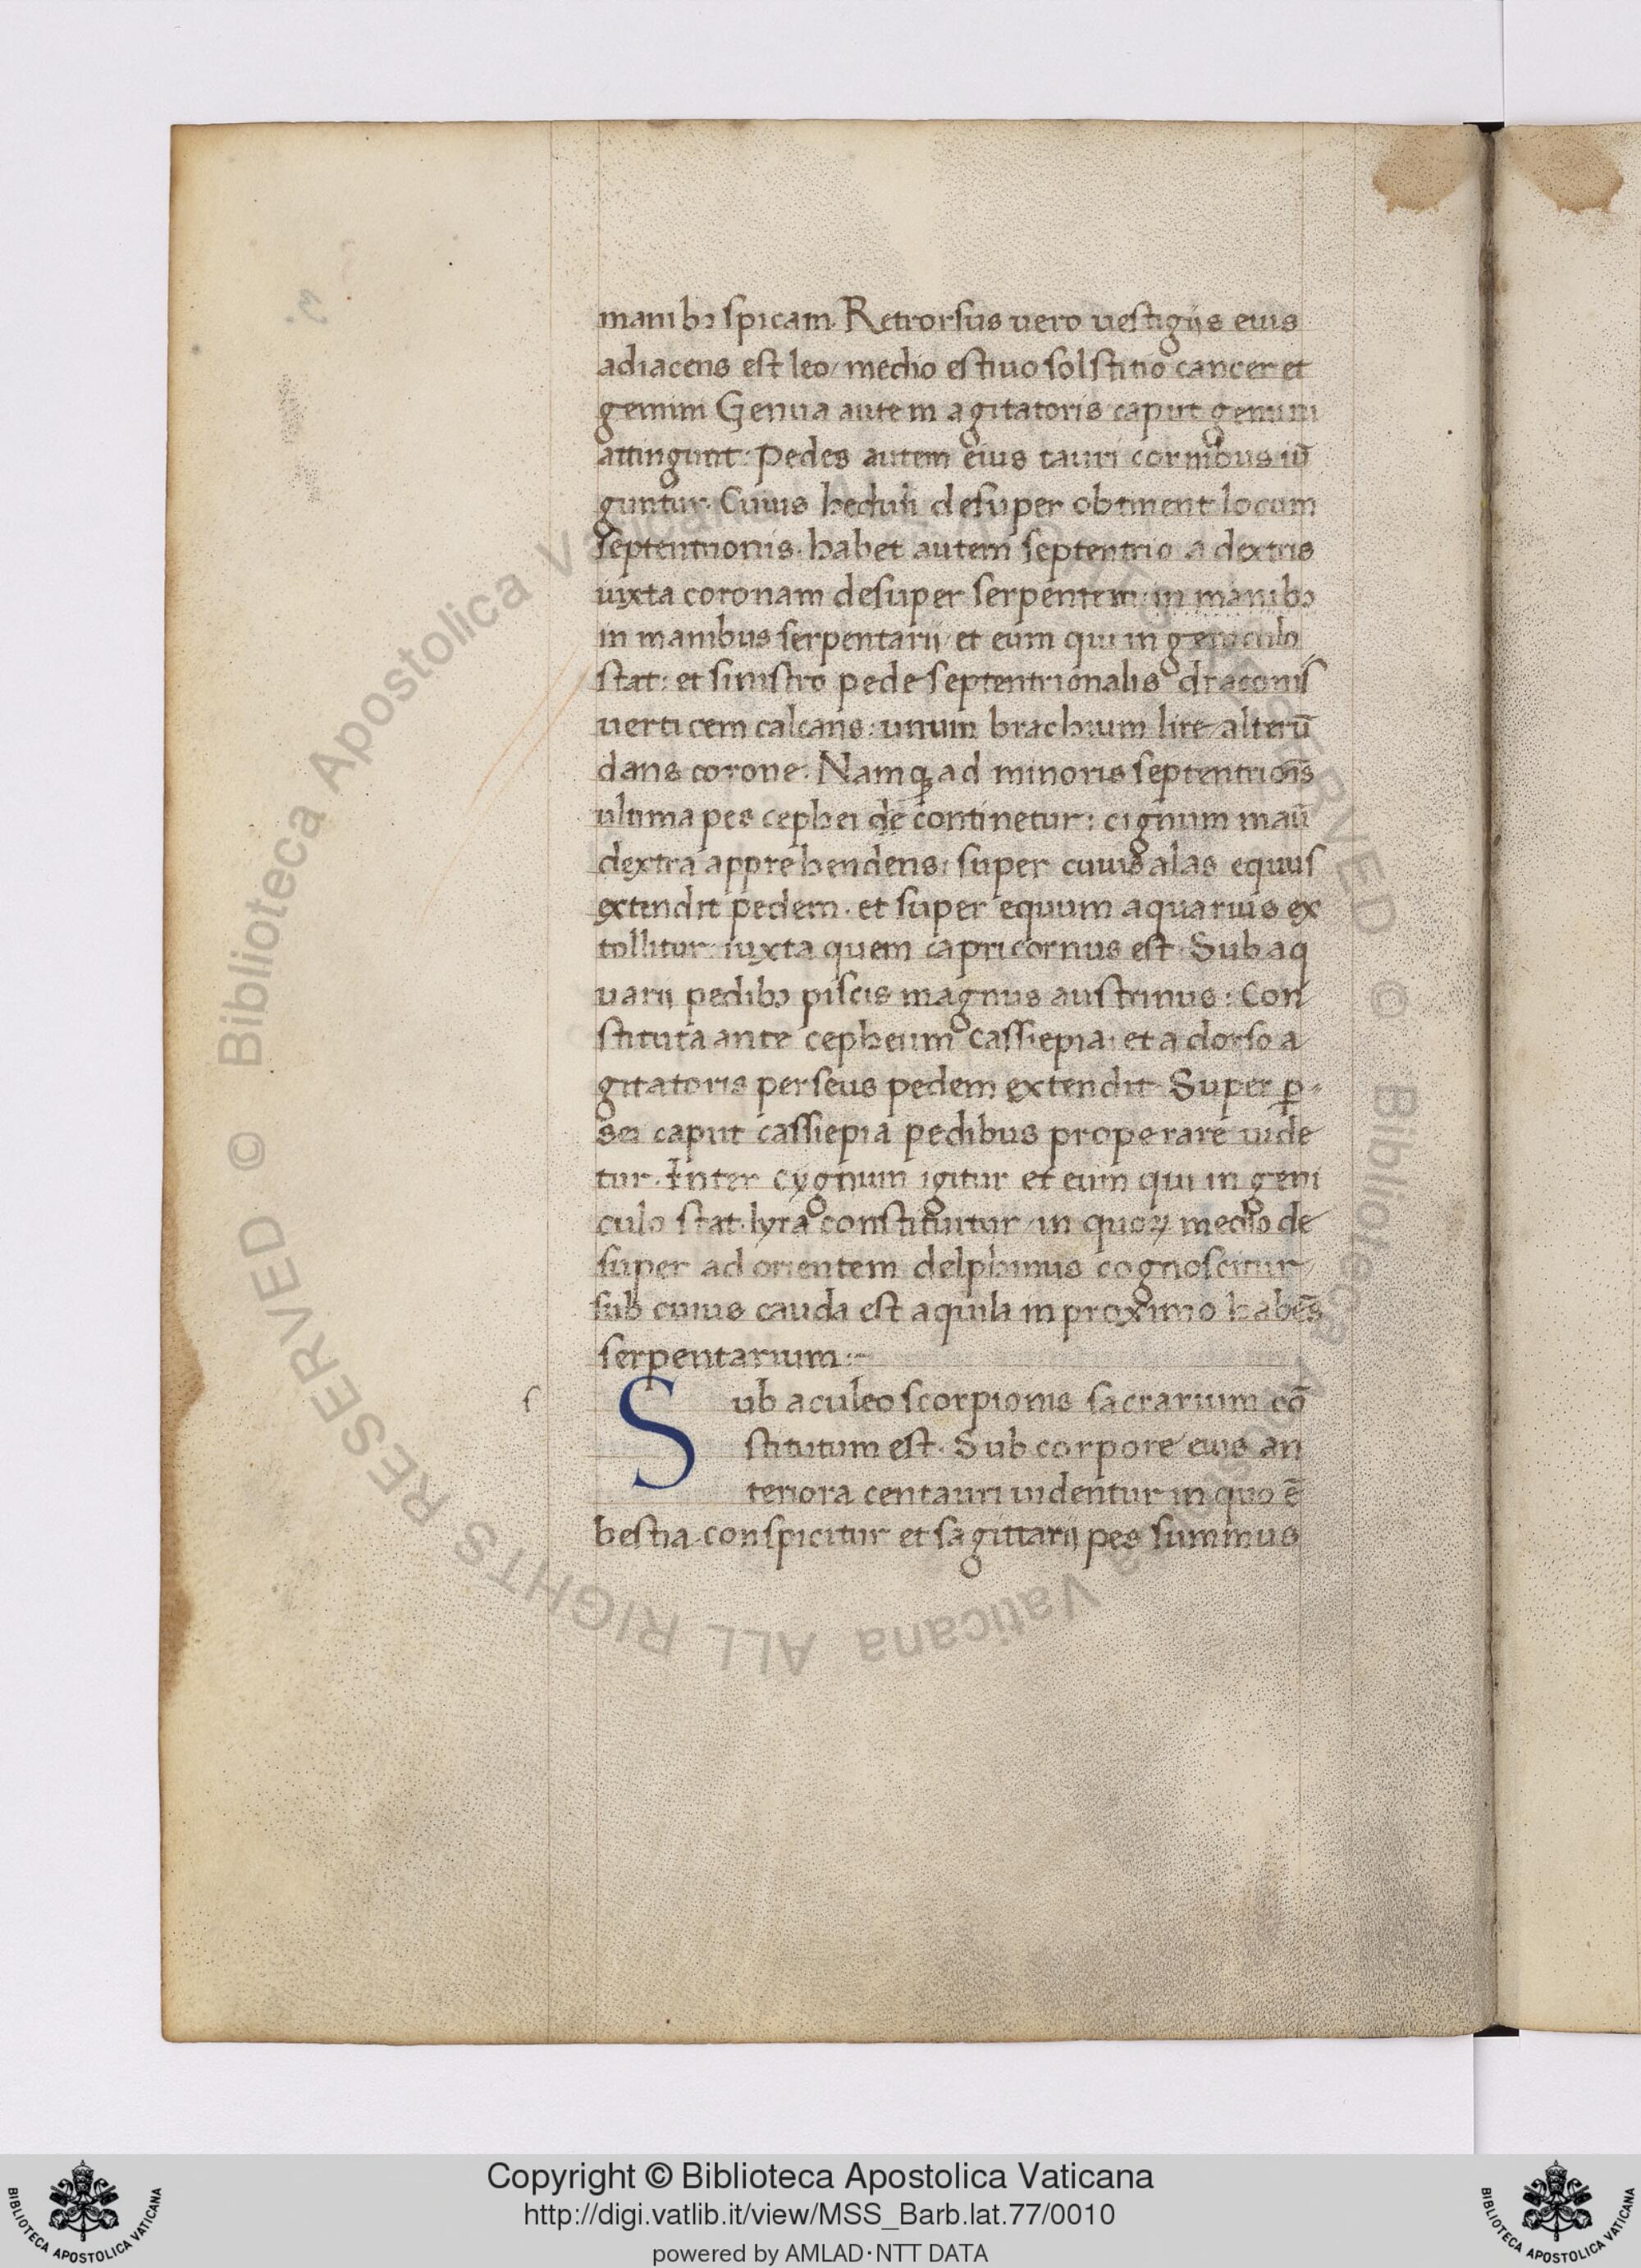 manibꝫ spicam. Retrorsus uero uestigijs eius
adiacens est leo/ medio estiuo solstitio cancer et
gemini Genua autem agitatoris caput gemini
attingunt: Pedes autem eius tauri cornibus iū
guntur. Cuius heduli desuper obtinent locum
septentrionis. habet autem septentrio a dextris
iuxta coronam desuper serpentem: in manibꝫ
in manibus serpentarij/ et eum qui in geniculo
stat: et sinistro pede septentrionalis draconis
uerticem calcans: unum brachium lire/ alterū
dans corone. Namqꝫ ad minoris septentriōis
ultima pes cephei de continetur: cignum manū
dextra apprehendens: super cuius alas equus
extendit pedem. et super equum aquarius ex
tollitur: iuxta quem capricornus est. Sub aq
uarij pedibꝫ piscis magnus austrinus: Con
stituta ante cepheum cassiepia: et a dorso a
gitatoris perseus pedem extendit. Super ꝑ-
sei caput cassiepia pedibus properare uide
tur. Inter cygnum igitur et eum qui in geni
culo stat. lyra constituitur/ in quoꝝ medio de
super ad orientem delphinus cognoscitur/
sub cuius cauda est aquila in proximo habēs
serpentarium:~
s
Sub aculeo scorpionis sacrarium cō
stitutum est. Sub corpore eius an
teriora centauri uidentur in quo ē
bestia. conspicitur et sagittarij pes summus
Biblioteca Apostolica Vaticana ALL RIGHTS RESERVED ©
Copyright © Biblioteca Apostolica Vaticana
http://digi.vatlib.it/view/MSS_Barb.lat.77/0010
powered by AMLAD·NTT DATA
BIBLIOTECA APOSTOLICA VATICANA
BIBLIOTECA APOSTOLICA VATICANA